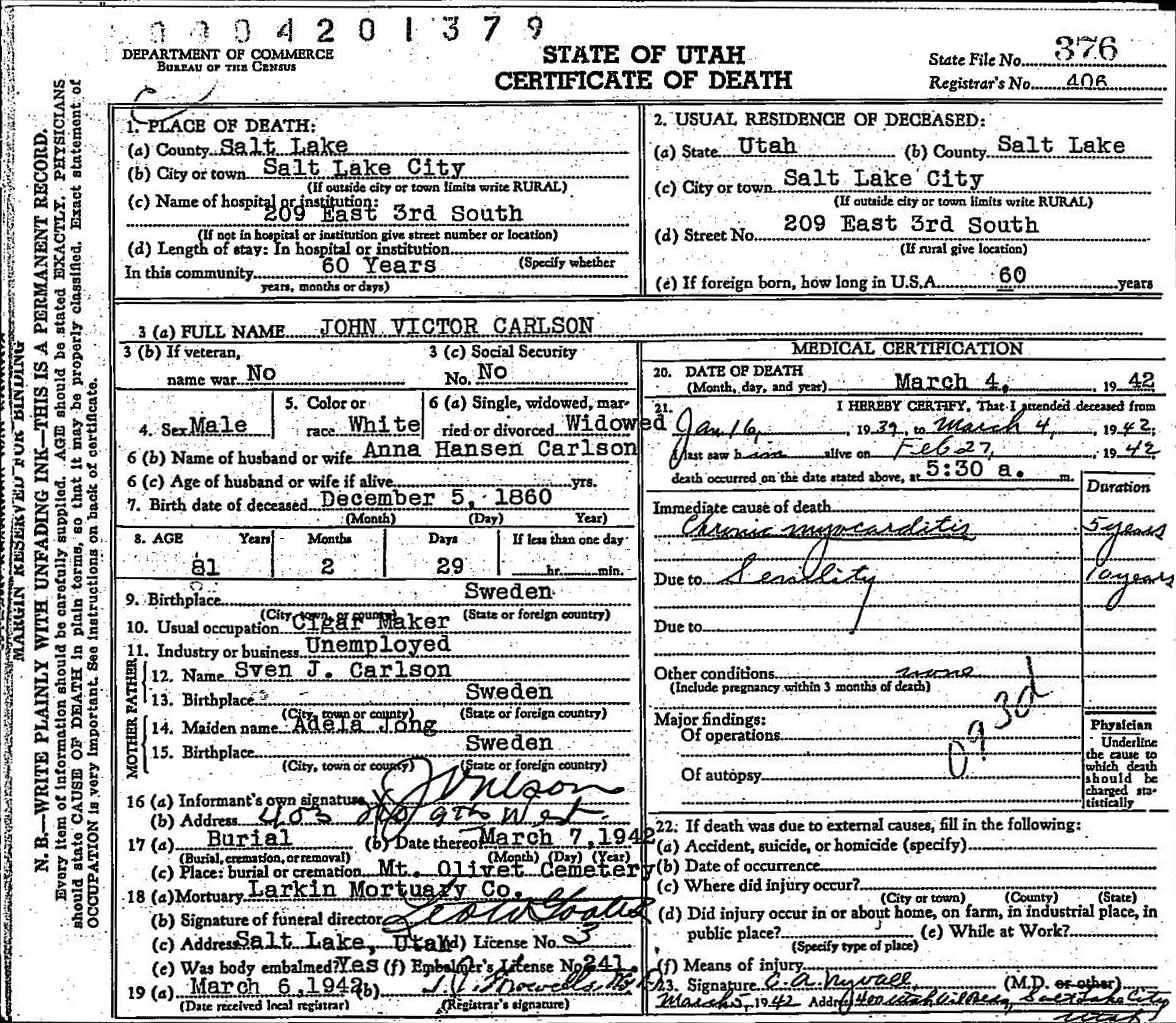 0004201379
DEPARTMENT OF COMMERCE
BUREAU OF THE CENSUS
STATE OF UTAH
CERTIFICATE OF DEATH
State File No. 376
Registrar's No. 406
MARGIN RESERVED FOR BINDING
N. B.—WRITE PLAINLY WITH UNFADING INK—THIS IS A PERMANENT RECORD.
Every item of information should be carefully supplied. AGE should be stated EXACTLY. PHYSICIANS
should state CAUSE OF DEATH in plain terms, so that it may be properly classified. Exact statement of
OCCUPATION is very important. See instructions on back of certificate.
1. PLACE OF DEATH:
(a) County Salt Lake
(b) City or town Salt Lake City
(If outside city or town limits write RURAL)
(c) Name of hospital or institution:
209 East 3rd South
(If not in hospital or institution give street number or location)
(d) Length of stay: In hospital or institution
(Specify whether
In this community 60 Years
years, months or days)
2. USUAL RESIDENCE OF DECEASED:
(a) State Utah (b) County Salt Lake
(c) City or town Salt Lake City
(If outside city or town limits write RURAL)
(d) Street No. 209 East 3rd South
(If rural give location)
(e) If foreign born, how long in U.S.A. 60 years
3 (a) FULL NAME JOHN VICTOR CARLSON
3 (b) If veteran,
name war No
3 (c) Social Security
No. No
4. Sex Male
5. Color or
race White
6 (a) Single, widowed, mar-
ried or divorced Widowed
6 (b) Name of husband or wife Anna Hansen Carlson
6 (c) Age of husband or wife if alive yrs.
7. Birth date of deceased December 5, 1860
(Month) (Day) Year)
8. AGE Years Months Days If less than one day
81 2 29 hr. min.
9. Birthplace Sweden
(City, town, or county) (State or foreign country)
10. Usual occupation Cigar Maker
11. Industry or business Unemployed
FATHER
12. Name Sven J. Carlson
13. Birthplace Sweden
(City, town or county) (State or foreign country)
MOTHER
14. Maiden name Adela Jong
15. Birthplace Sweden
(City, town or county) (State or foreign country)
16 (a) Informant's own signature
(b) Address 403 No 9th West
17 (a) Burial (b) Date thereof March 7, 1942
(Burial, cremation, or removal) (Month) (Day) (Year)
(c) Place: burial or cremation Mt. Olivet Cemetery
18 (a) Mortuary Larkin Mortuary Co.
(b) Signature of funeral director
(c) Address Salt Lake, Utah (d) License No. 3
(e) Was body embalmed? Yes (f) Embalmer's License No. 241
19 (a) March 6, 1942 (b)
(Date received local registrar) (Registrar's signature)
MEDICAL CERTIFICATION
20. DATE OF DEATH
(Month, day, and year) March 4, 1942
21. I HEREBY CERTIFY, That I attended deceased from
Jan 16, 1939, to March 4, 1942;
I last saw him alive on Feb 27, 1942
death occurred on the date stated above, at 5:30 a. m.
Duration
Immediate cause of death
Chronic myocarditis 5 years
Due to Senility 10 years
Due to
Other conditions none
(Include pregnancy within 3 months of death)
Major findings:
Of operations
Of autopsy
093d
Physician
Underline
the cause to
which death
should be
charged sta-
tistically
22. If death was due to external causes, fill in the following:
(a) Accident, suicide, or homicide (specify)
(b) Date of occurrence
(c) Where did injury occur?
(City or town) (County) (State)
(d) Did injury occur in or about home, on farm, in industrial place, in
public place? (e) While at Work?
(Specify type of place)
(f) Means of injury
23. Signature C. A. Nyvall, (M.D. or other)
March 5, 1942 Address Salt Lake City
Utah